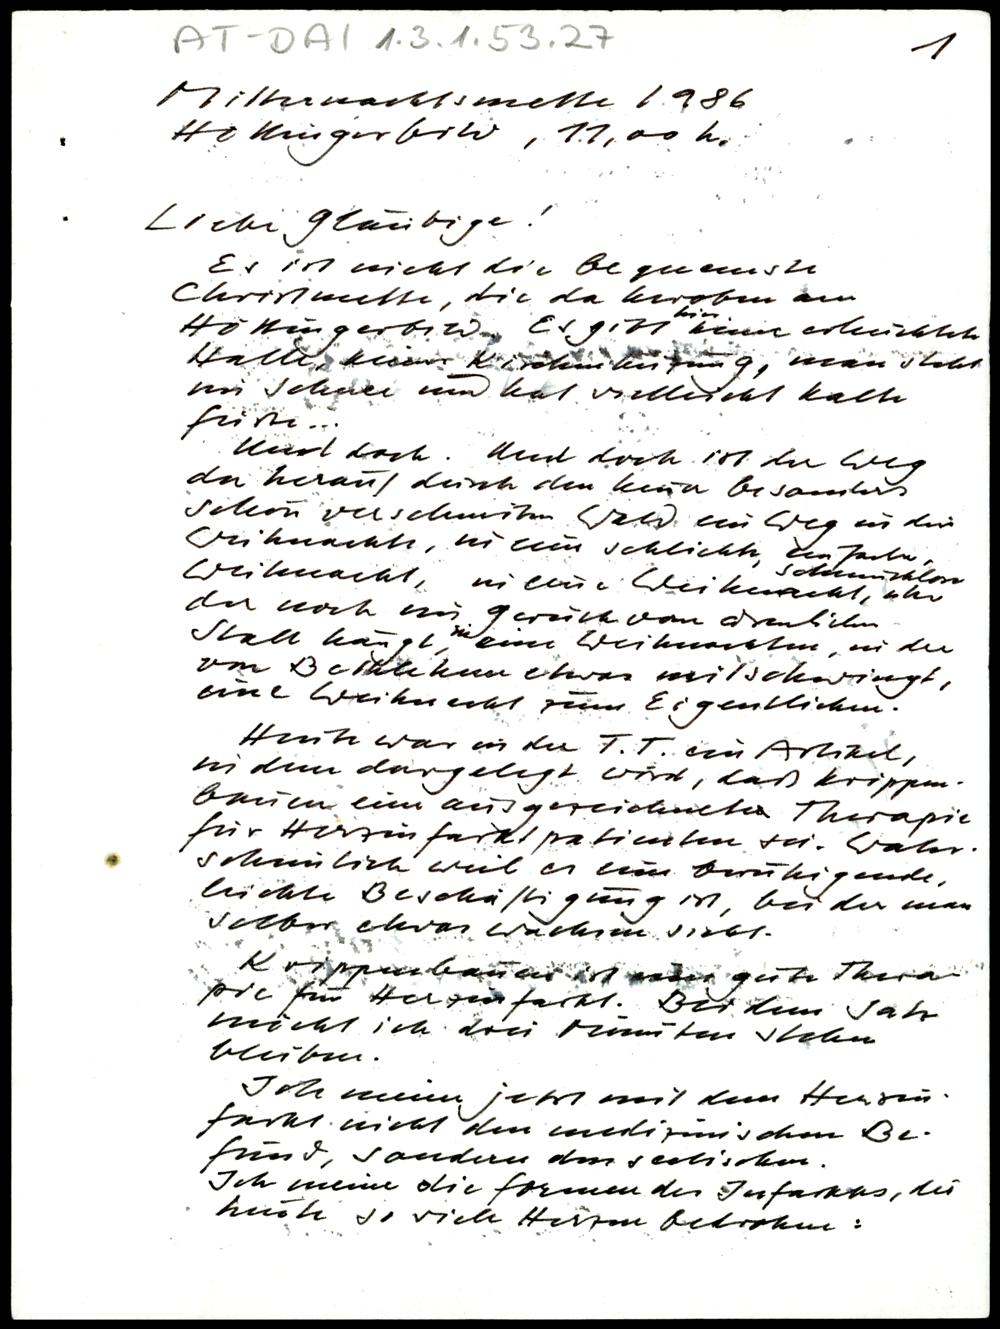 AT-DAI 1.3.1.53.27
1
Mitternachtsmette 1986
Höttingerbild, 11,00 h.
Liebe Gläubige!
Es ist nicht die bequemste
Christmette, die da heroben am
Höttingerbild. Es gibt hier keine erleuchtete
Halle, keine Kirchenheizung, man steht
im Schnee und hat vielleicht kalte
Füsse...
Und doch. Und doch ist der Weg
da herauf durch den heuer besonders
schön verschneiten Wald ein Weg in die
Weihnachten, in eine schlichte, einfache,
schmucklose
Weihnacht, in eine Weihnacht, über
der noch ein Geruch vom ärmlichen
Stall hängt, in eine Weihnachten, in der
von Bethlehem etwas mitschwingt,
eine Weihnacht zum Eigentlichen.
Heute war in der T.T. ein Artikel,
in dem dargelegt wird, daß Krippen-
bauen eine ausgezeichnete Therapie
für Herzinfarktpatienten sei. Wahr-
scheinlich weil es eine beruhigende,
leichte Beschäftigung ist, bei der man
selber etwas wachsen sieht.
Krippenbauen ist eine gute Thera-
pie für Herzinfarkt. Bei dem Satz
möcht ich drei Minuten stehen
bleiben.
Ich meine jetzt mit dem Herzin-
farkt nicht den medizinischen Be-
fund, sondern den seelischen.
Ich meine die Formen des Infarkts, die
heute so viele Herzen bedrohen: